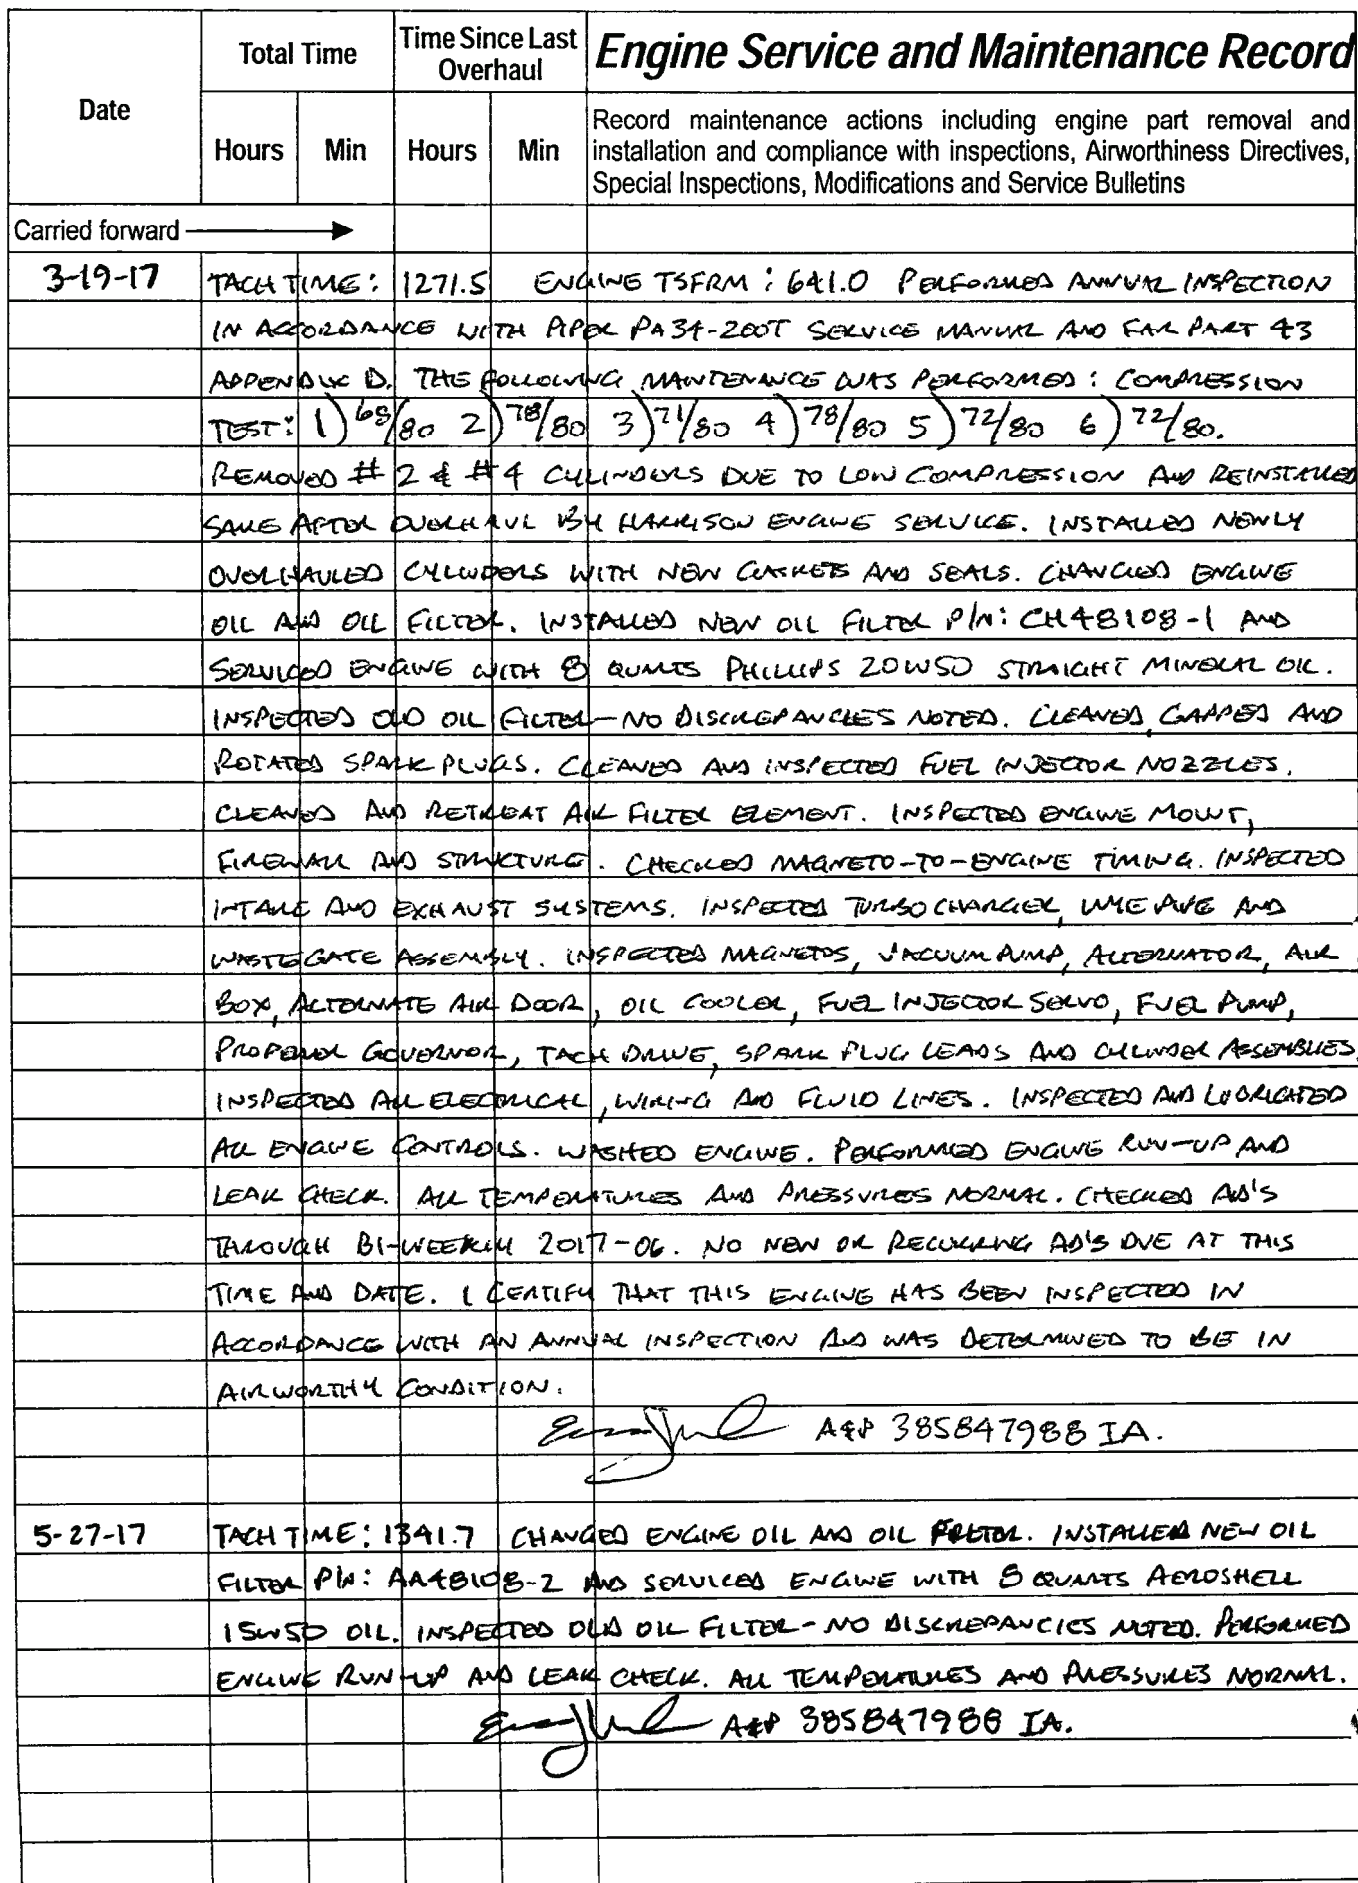 Date
Total Time
Time Since Last Overhaul
Engine Service and Maintenance Record
Hours Min Hours Min
Record maintenance actions including engine part removal and
installation and compliance with inspections, Airworthiness Directives,
Special Inspections, Modifications and Service Bulletins
Carried forward
3-19-17 TACH TIME: 1271.5 ENGINE TSFRM: 641.0 PERFORMED ANNUAL INSPECTION
IN ACCORDANCE WITH PIPER PA34-200T SERVICE MANUAL AND FAR PART 43
APPENDIX D. THE FOLLOWING MAINTENANCE WAS PERFORMED: COMPRESSION
TEST: 1) 68/80 2) 78/80 3) 71/80 4) 78/80 5) 72/80 6) 72/80.
REMOVED #2 & #4 CYLINDERS DUE TO LOW COMPRESSION AND REINSTALLED
SAME AFTER OVERHAUL BY HARRISON ENGINE SERVICE. INSTALLED NEWLY
OVERHAULED CYLINDERS WITH NEW GASKETS AND SEALS. CHANGED ENGINE
OIL AND OIL FILTER. INSTALLED NEW OIL FILTER P/N: CH48108-1 AND
SERVICED ENGINE WITH 8 QUARTS PHILLIPS 20W50 STRAIGHT MINERAL OIL.
INSPECTED OLD OIL FILTER-NO DISCREPANCIES NOTED. CLEANED, GAPPED AND
ROTATED SPARK PLUGS. CLEANED AND INSPECTED FUEL INJECTOR NOZZLES.
CLEANED AND RETREAT AIR FILTER ELEMENT. INSPECTED ENGINE MOUNT,
FIREWALL AND STRUCTURE. CHECKED MAGNETO-TO-ENGINE TIMING. INSPECTED
INTAKE AND EXHAUST SYSTEMS. INSPECTED TURBOCHARGER, AND
WASTEGATE ASSEMBLY. INSPECTED MAGNETOS, VACUUM PUMP, ALTERNATOR, AIR
BOX, ALTERNATE AIR DOOR, OIL COOLER, FUEL INJECTOR SERVO, FUEL PUMP,
PROPELLER GOVERNOR, TACH DRIVE, SPARK PLUG LEADS AND CYLINDER ASSEMBLIES.
INSPECTED ALL ELECTRICAL, WIRING AND FLUID LINES. INSPECTED AND LUBRICATED
ALL ENGINE CONTROLS. WASHED ENGINE. PERFORMED ENGINE RUN-UP AND
LEAK CHECK. ALL TEMPERATURES AND PRESSURES NORMAL. CHECKED AD'S
THROUGH BI-WEEKLY 2017-06. NO NEW OR RECURRING AD'S DUE AT THIS
TIME AND DATE. I CERTIFY THAT THIS ENGINE HAS BEEN INSPECTED IN
ACCORDANCE WITH AN ANNUAL INSPECTION AND WAS DETERMINED TO BE IN
AIRWORTHY CONDITION.
A&P 385847988 IA.
5-27-17 TACH TIME: 1341.7 CHANGED ENGINE OIL AND OIL FILTER. INSTALLED NEW OIL
FILTER P/N: AA48108-2 AND SERVICED ENGINE WITH 8 QUARTS AEROSHELL
15W50 OIL. INSPECTED OLD OIL FILTER-NO DISCREPANCIES NOTED. PERFORMED
ENGINE RUN-UP AND LEAK CHECK. ALL TEMPERATURES AND PRESSURES NORMAL.
A&P 385847988 IA.